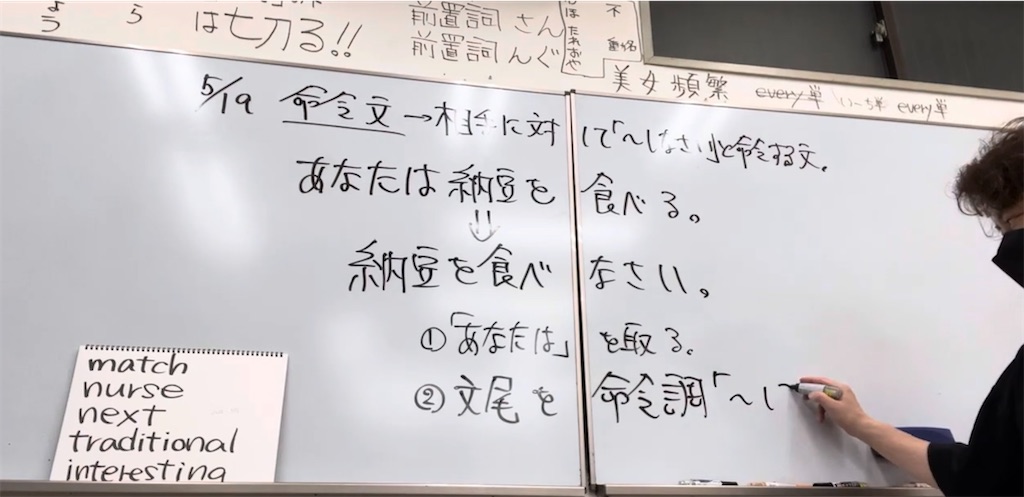 は七刀る!!
前置詞さん
前置詞んぐ
美女頻繁 every単 いーち単 every単
5/19 命令文→相手に対して「〜しなさい」と命令する文。
あなたは納豆を食べる。
⇓
納豆を食べなさい。
①「あなたは」を取る。
②文尾を命令調「〜し
match
nurse
next
traditional
interesting